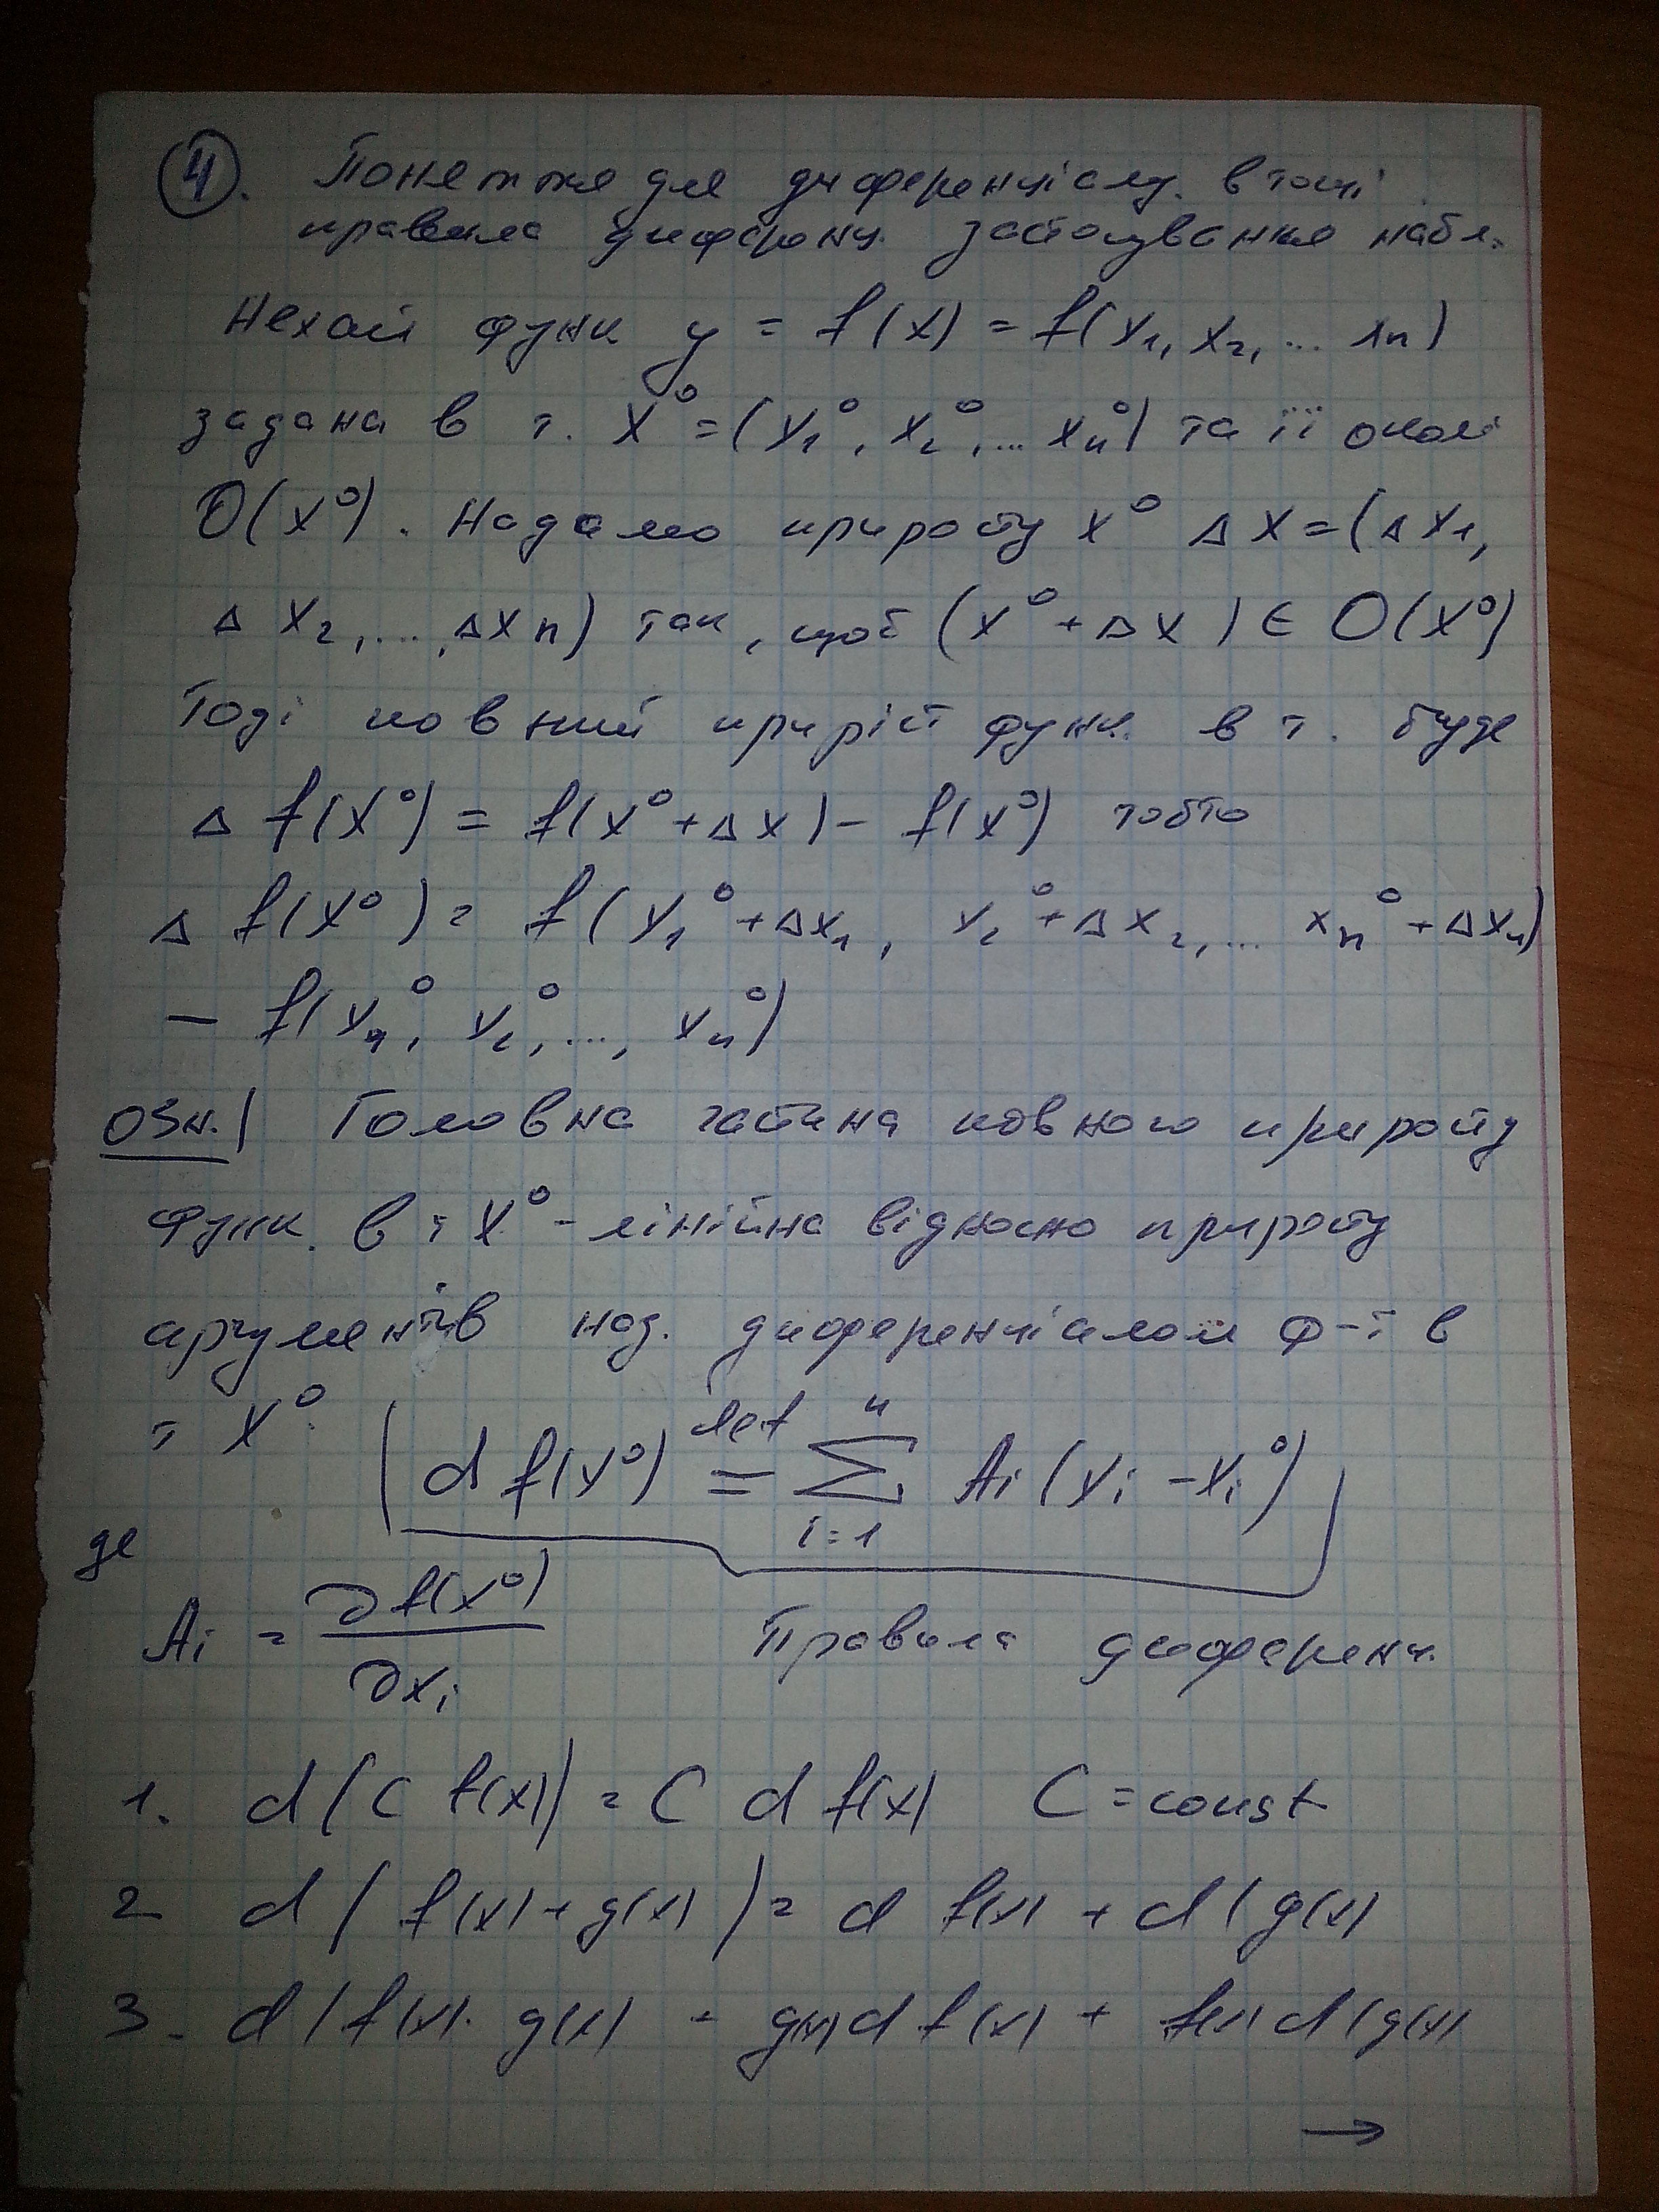 ④. Понеття для диференціалу. в точці
правила диферец. застосування набл.
Нехай функ y = f(x) = f(x₁, x₂, ... xn)
задана в т. X⁰ = (x₁⁰, x₂⁰, ... xn⁰) та її околі
O(x⁰). Надамо приросту x⁰ Δx = (Δx₁,
Δx₂, ..., Δxn) так, щоб (x⁰ + Δx) ∈ O(x⁰)
Тоді повний приріст функ. в т. буде
Δ f(x⁰) = f(x⁰ + Δx) - f(x⁰) тобто
Δ f(x⁰) = f(x₁⁰ + Δx₁, x₂⁰ + Δx₂, ... xn⁰ + Δxn)
- f(x₁⁰, x₂⁰, ..., xn⁰)
Озн.| Головна частина повного приросту
функ. в т X⁰ - лінійна відносно приросту
аргументів наз. диференціалом ф-ї в
т X⁰. d f(x⁰) = def ∑ i=1 n Ai (xi - xi⁰)
де
Ai = ∂f(x⁰) / ∂xi Правила диференц.
1. d (C f(x)) = C d f(x) C = const
2 d (f(x) + g(x)) = d f(x) + d (g(x)
3. d (f(x) · g(x) = g(x) d f(x) + f(x) d (g(x)
→